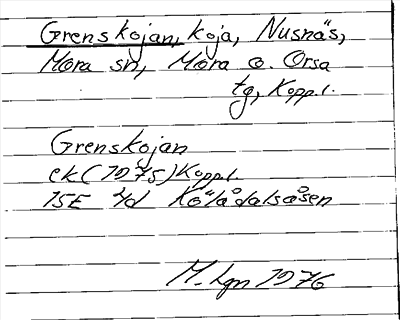 Grenskojan, koja, Nusnäs,
Mora sn, Mora o. Orsa
tg, Kopp.l.
Grenskojan
ek (1975) Kopp.l.
15E Kölådalsåsen
M. Lgn 1976